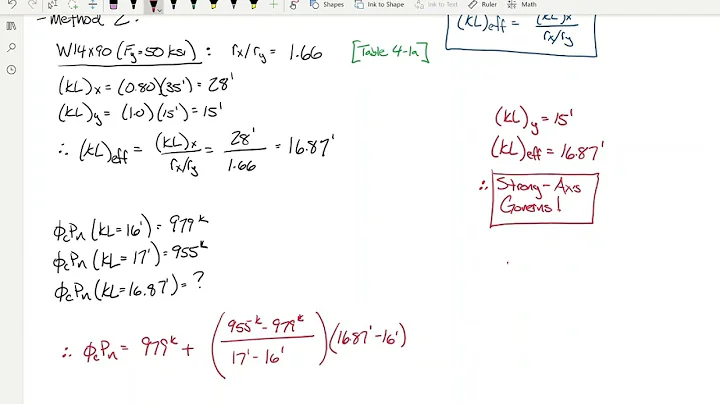 Shapes
Ink to Shape
Ink to Text
Ruler
Math
- Method 2:
W14x90 (Fy=50 ksi): rx/ry = 1.66 [Table 4-1a]
(KL)eff = (KL)x / rx/ry
(KL)x = (0.80)(35') = 28'
(KL)y = (1.0)(15') = 15'
∴ (KL)eff = (KL)x / rx/ry = 28' / 1.66 = 16.87'
(KL)y = 15'
(KL)eff = 16.87'
∴ Strong-Axis
Governs!
ϕcPn (KL=16') = 979k
ϕcPn (KL=17') = 955k
ϕcPn (KL=16.87') = ?
∴ ϕcPn = 979k + (955k - 979k / 17' - 16')(16.87' - 16')